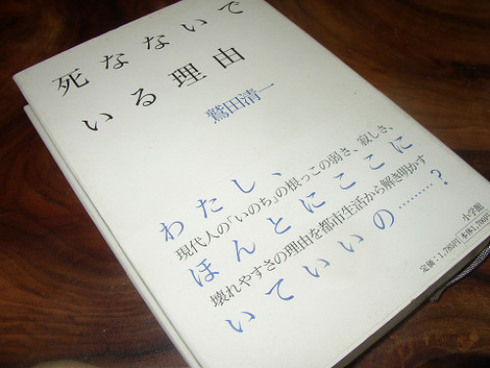 死なないで
いる理由
鷲田清一
わたし、
現代人の「いのち」の根っこの弱さ、寂しさ、
ほんとにここに
壊れやすさの理由を都市生活から解き明かす
いていいの………?
小学館
定価:1,785円 本体1,700円